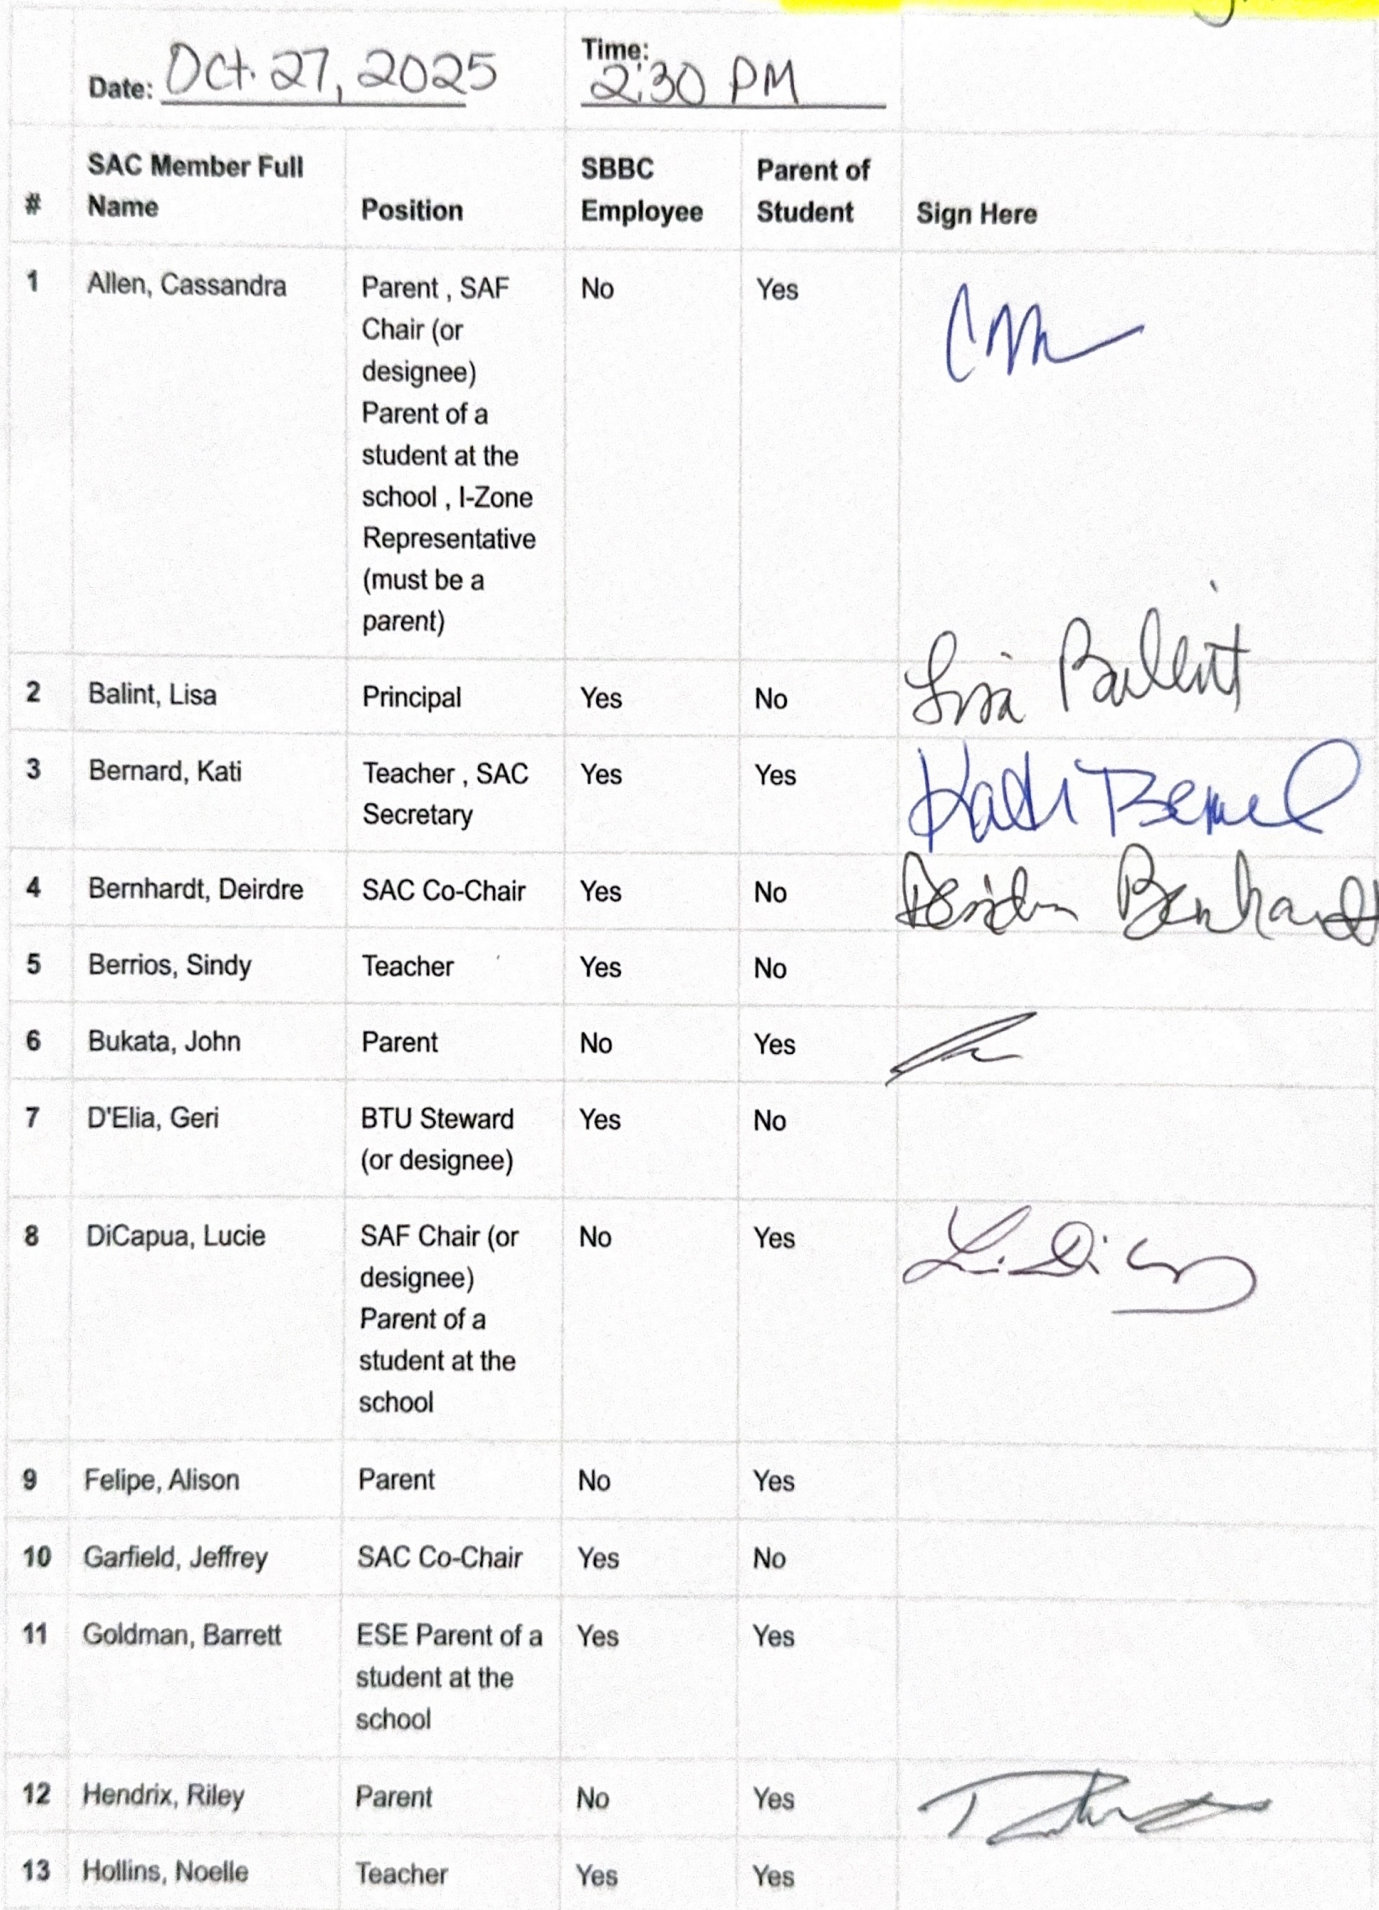 Date: Oct. 27, 2025 Time: 2:30 PM
# SAC Member Full Name Position SBBC Employee Parent of Student Sign Here
1 Allen, Cassandra Parent , SAF No Yes
Chair (or
designee)
Parent of a
student at the
school , I-Zone
Representative
(must be a
parent)
2 Balint, Lisa Principal Yes No Lisa Balint
3 Bernard, Kati Teacher , SAC Yes Yes Kati Bernard
Secretary
4 Bernhardt, Deirdre SAC Co-Chair Yes No Deirdre Bernhardt
5 Berrios, Sindy Teacher Yes No
6 Bukata, John Parent No Yes
7 D'Elia, Geri BTU Steward Yes No
(or designee)
8 DiCapua, Lucie SAF Chair (or No Yes
designee)
Parent of a
student at the
school
9 Felipe, Alison Parent No Yes
10 Garfield, Jeffrey SAC Co-Chair Yes No
11 Goldman, Barrett ESE Parent of a Yes Yes
student at the
school
12 Hendrix, Riley Parent No Yes
13 Hollins, Noelle Teacher Yes Yes